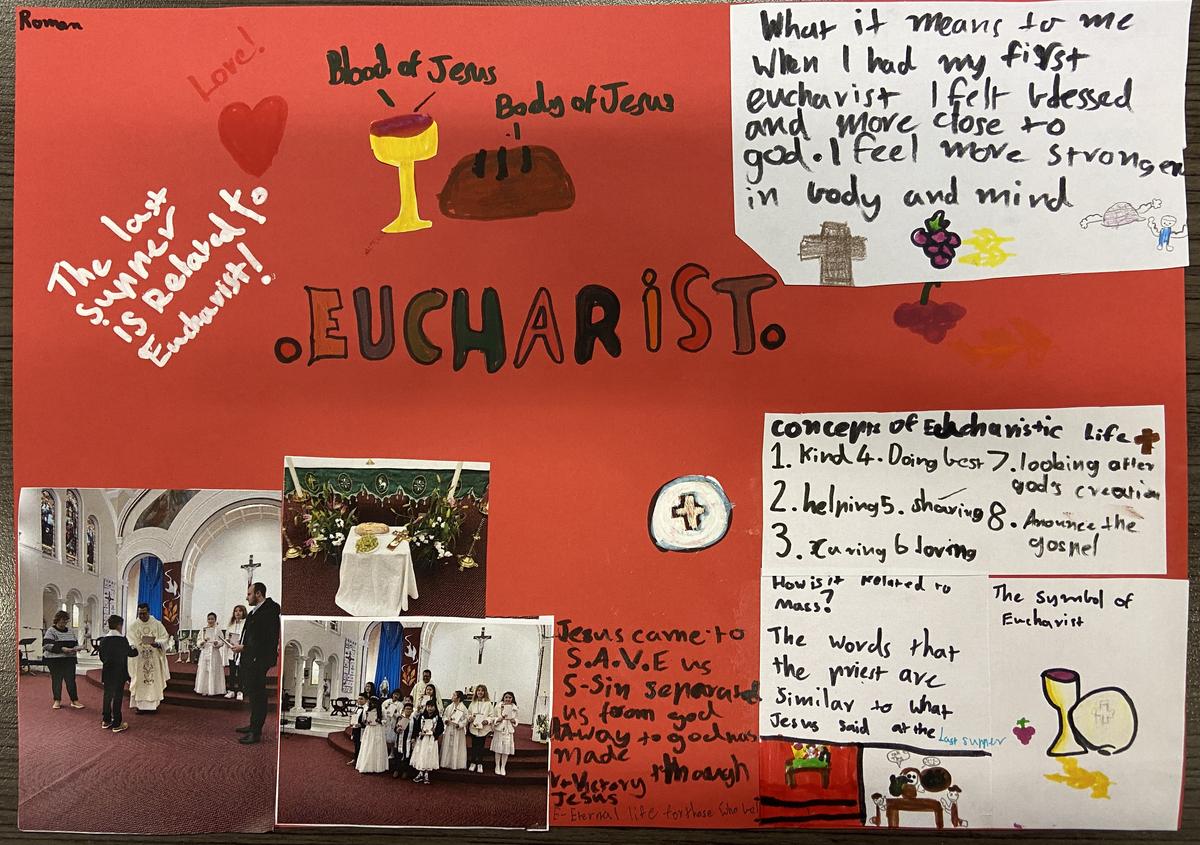 Roman
Love!
Blood of Jesus
Body of Jesus
The last
supper
is Related to
Eucharist!
.EUCHARIST.
What it means to me
When I had my first
eucharist I felt blessed
and more close to
god. I feel more stronger
in body and mind
concepts of Euchcharistic Life
1. Kind 4. Doing best 7. looking after
god's creation
2. helping 5. sharing 8. Anounce the
gospel
3. Caring 6 loving
How is it Related to
Mass?
The words that
the priest are
Similar to what
Jesus said at the Last supper
The symbol of
Eucharist
Jesus came to
S.A.V.E us
S-Sin separated
us from god
A-Way to god was
made
V-Victory through
Jesus
E-Eternal life for those who bel